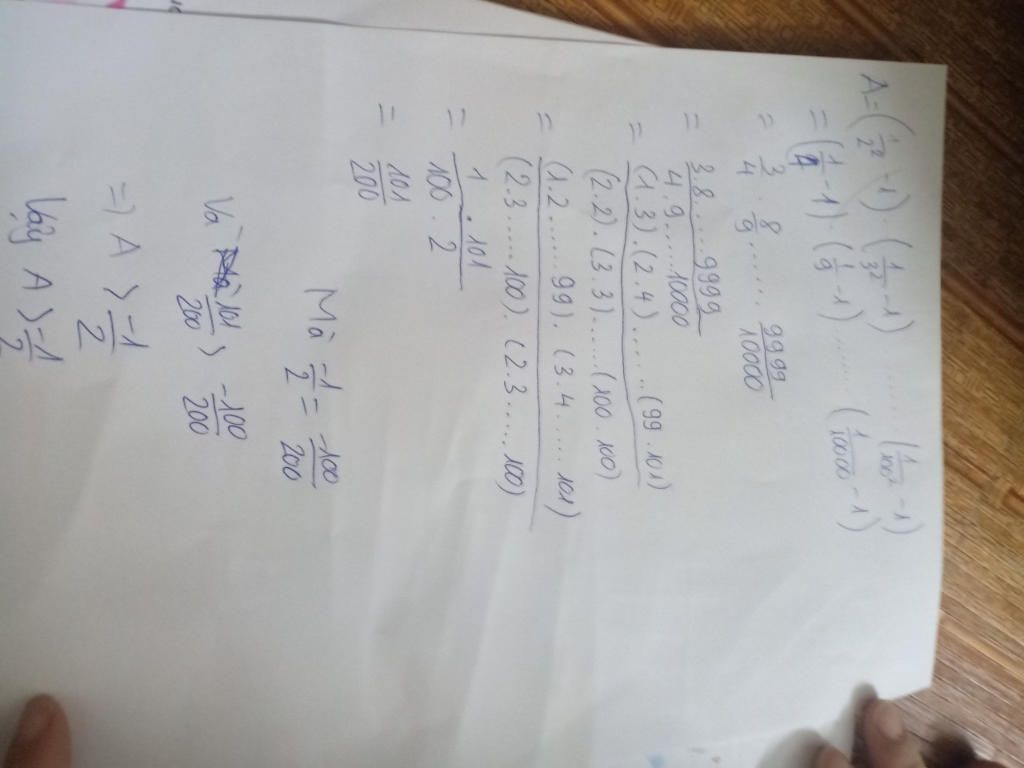 A = (1/2² - 1) . (1/3² - 1) ....... (1/100² - 1)
= (1/4 - 1) . (1/9 - 1) ........ (1/10000 - 1)
= 3/4 . 8/9 ...... 9999/10000
= 3.8......9999 / 4.9......10000
= (1.3).(2.4)......(99.101) / (2.2).(3.3)......(100.100)
= (1.2......99).(3.4.....101) / (2.3......100).(2.3.....100)
= 1.101 / 100.2
= 101/200
Mà -1/2 = -100/200
Và 101/200 > -100/200
=) A > -1/2
Vậy A > -1/2